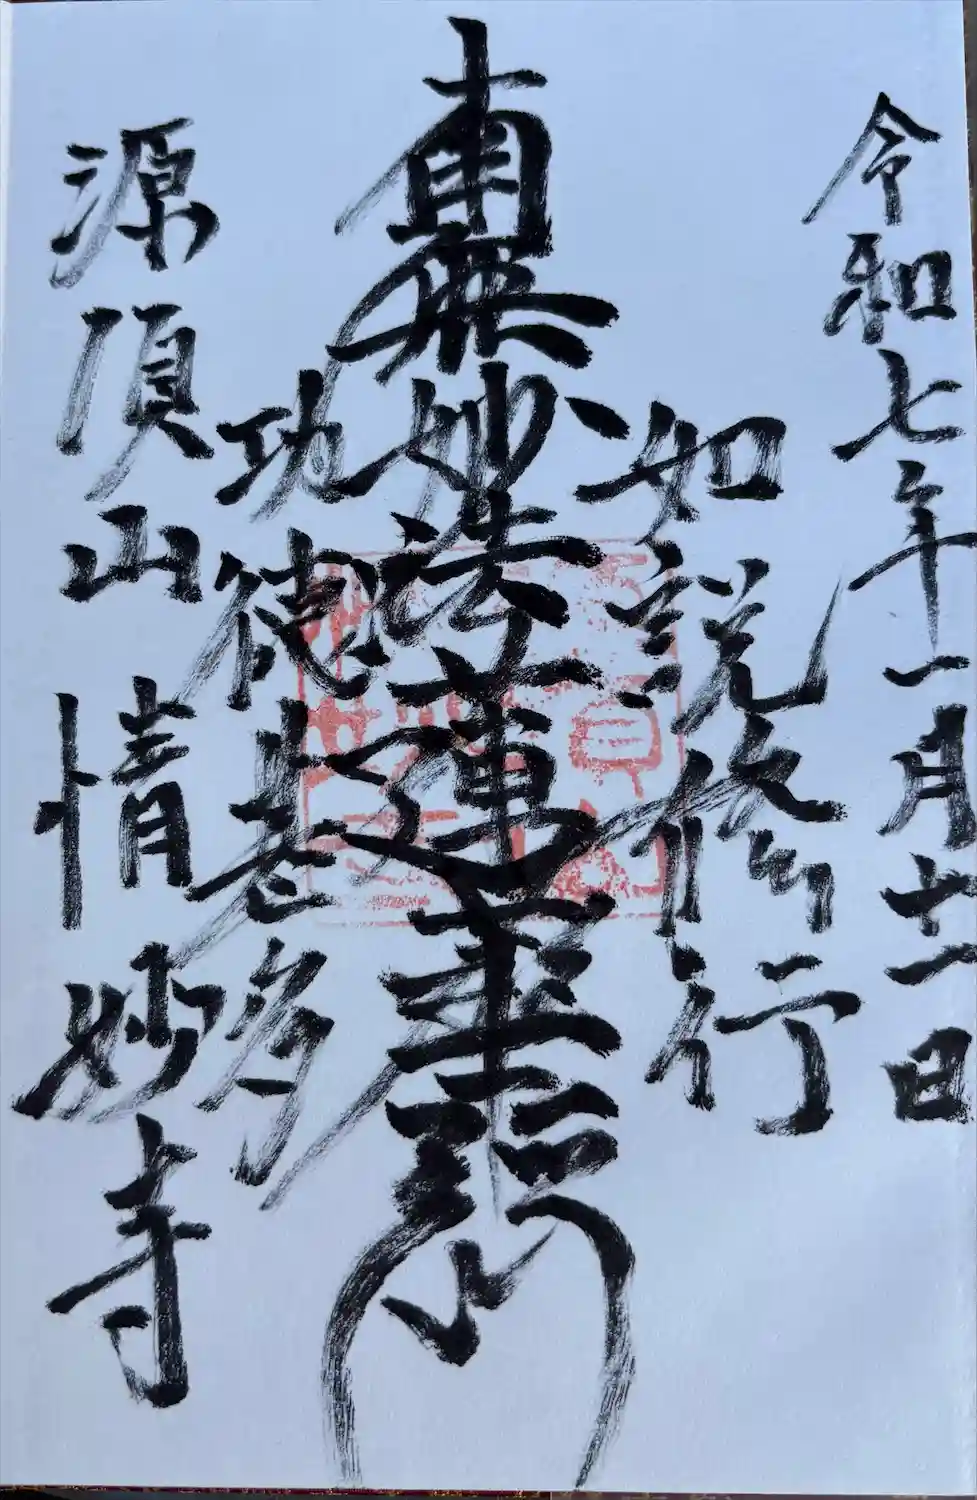 令和七年十一月廿一日
如説修行
南無妙法蓮華經
功徳甚多
源頂山 情妙寺